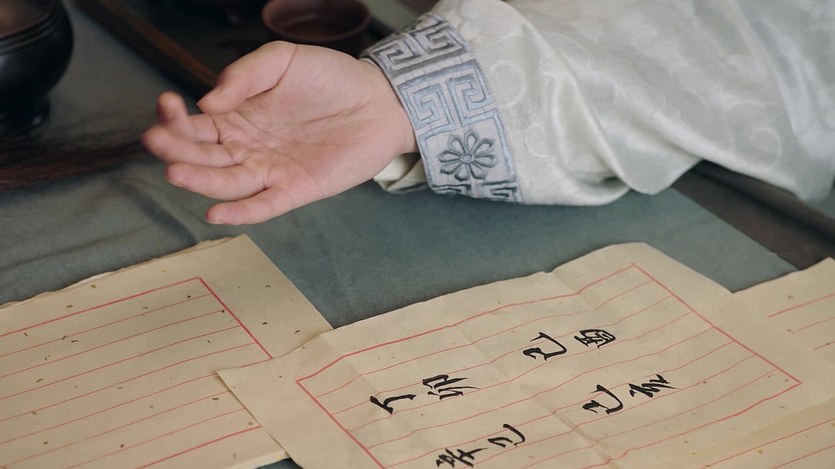 丁卯 己酉
辛巳 己亥